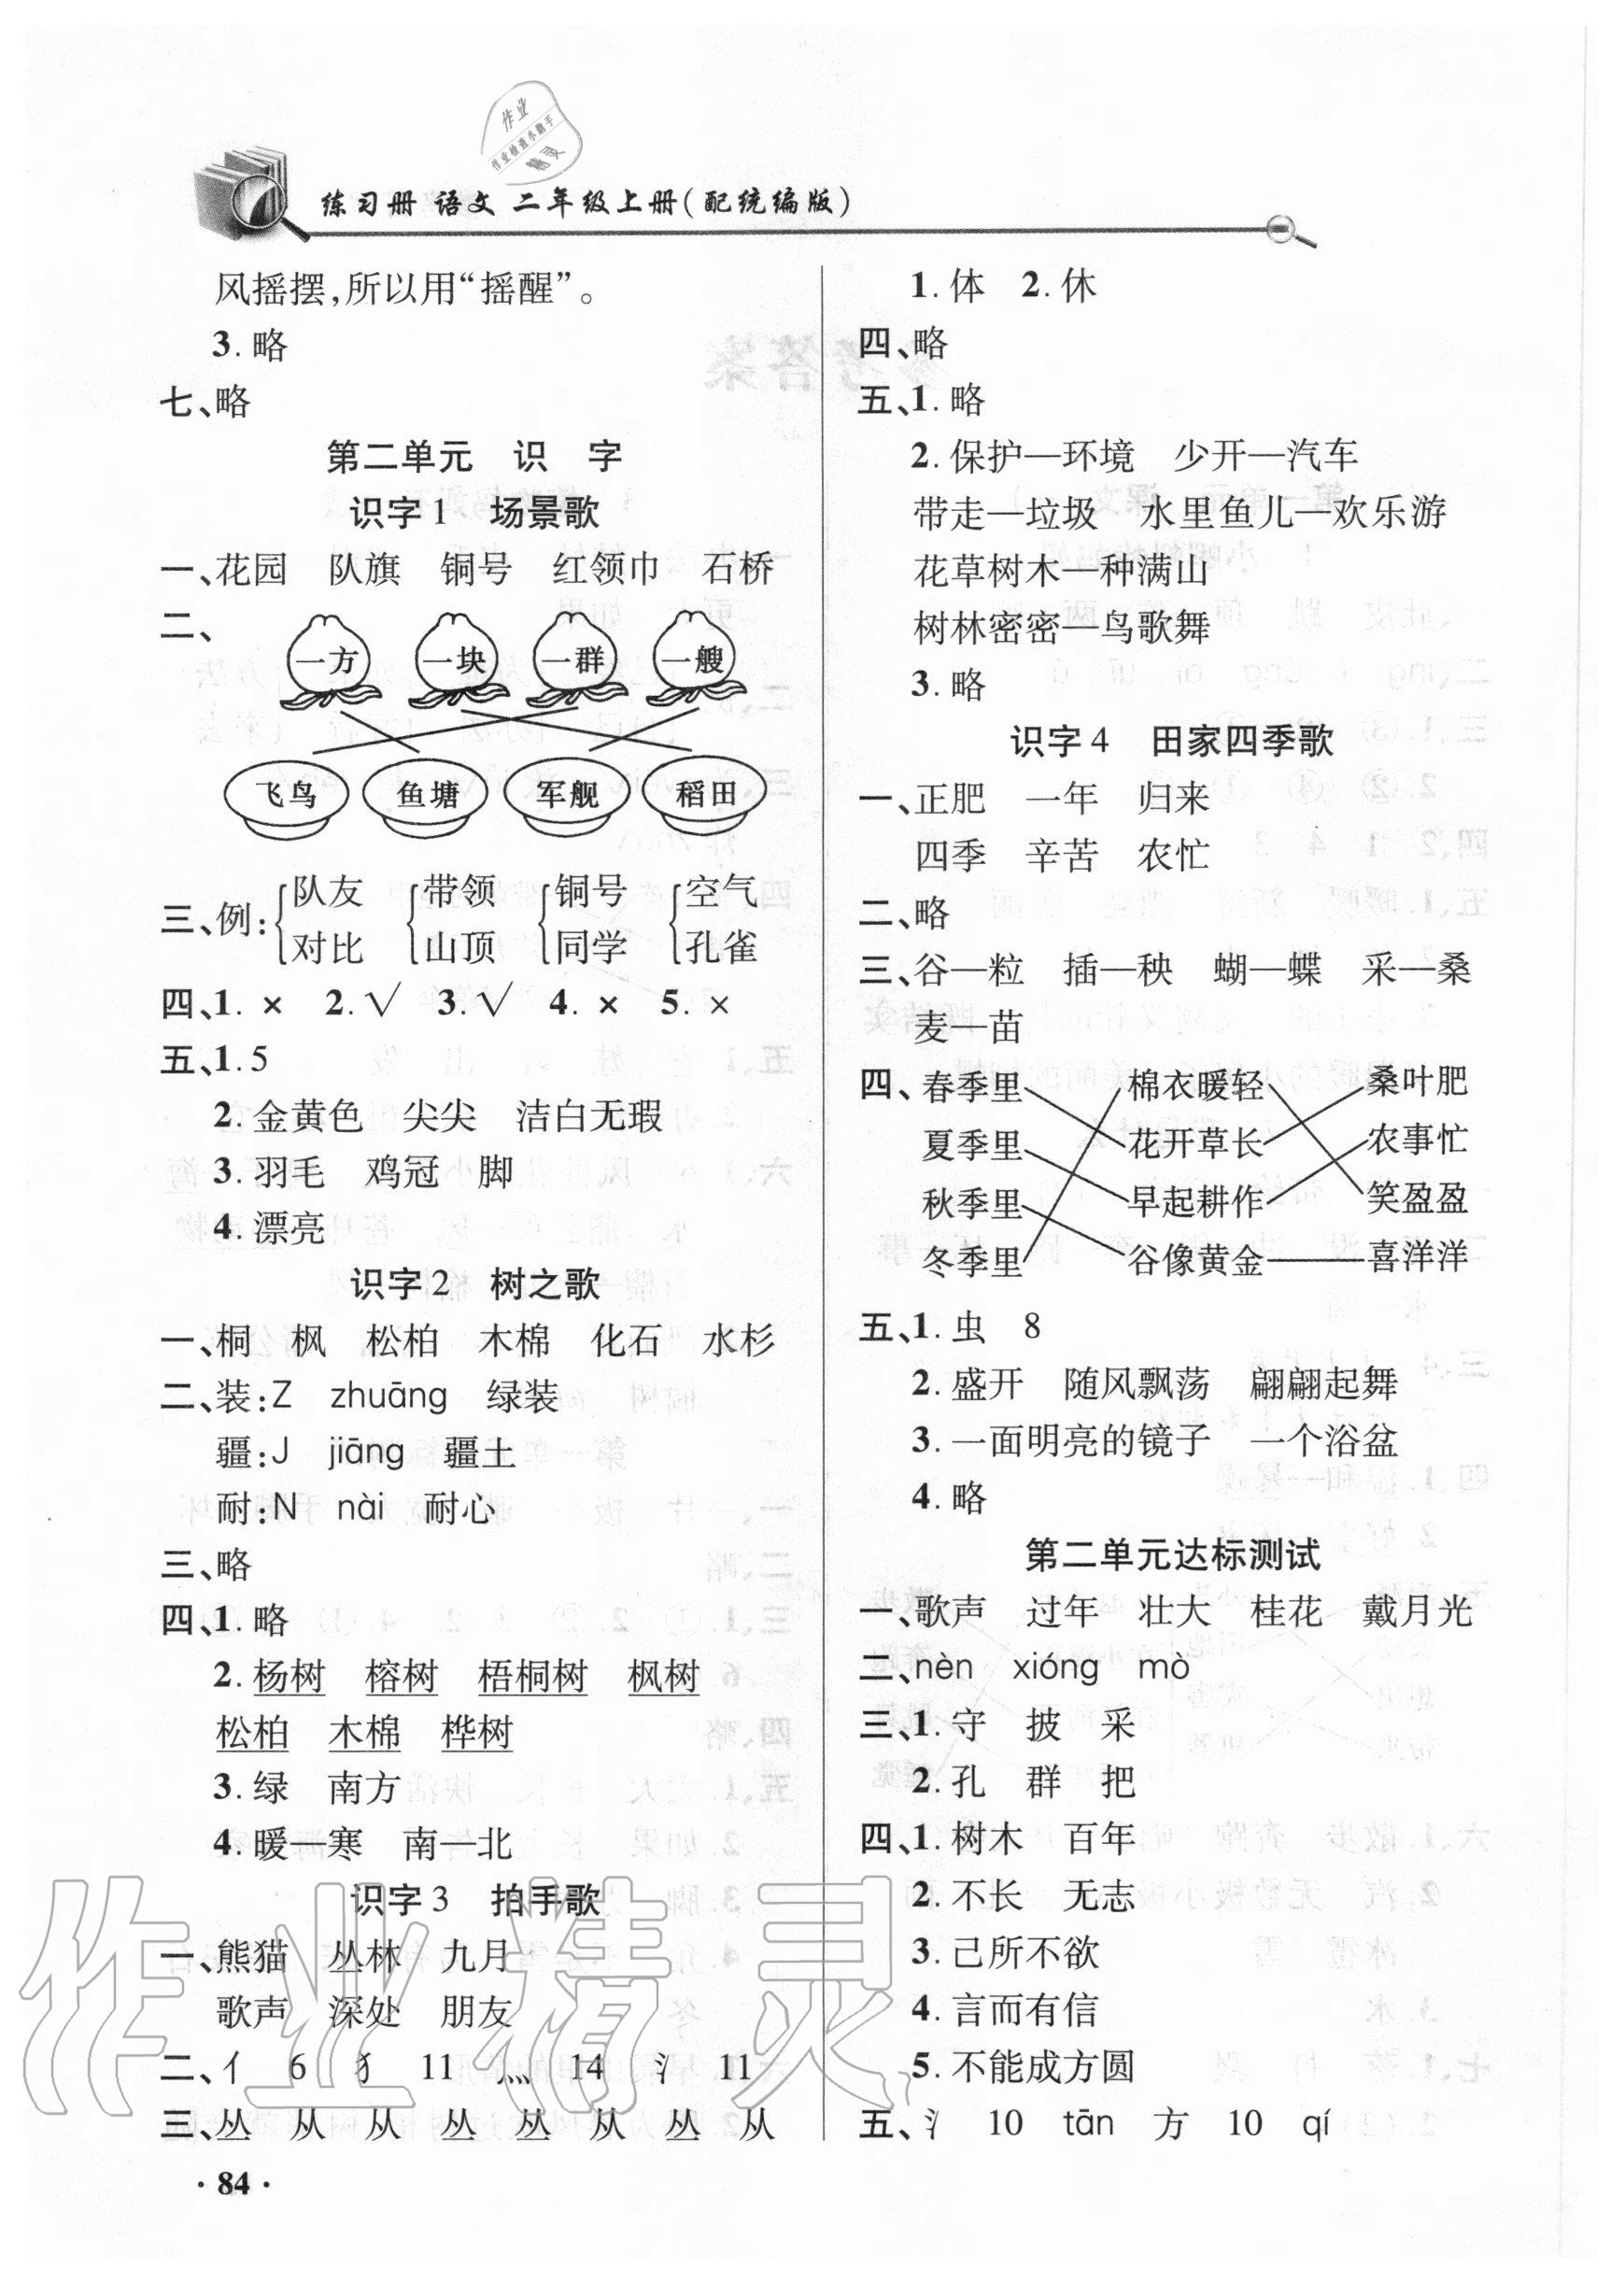 练习册 语文 二年级上册(配统编版)
作业
作业检查小助手
精灵
风摇摆,所以用“摇醒”。
3.略
七、略
第二单元 识 字
识字1 场景歌
一、花园 队旗 铜号 红领巾 石桥
二、
一方 一块 一群 一艘
飞鸟 鱼塘 军舰 稻田
三、例:{队友 {带领 {铜号 {空气
对比 山顶 同学 孔雀
四、1. × 2.√ 3.√ 4. × 5. ×
五、1.5
2.金黄色 尖尖 洁白无瑕
3.羽毛 鸡冠 脚
4.漂亮
识字2 树之歌
一、桐 枫 松柏 木棉 化石 水杉
二、装:Z zhuāng 绿装
疆:J jiāng 疆土
耐:N nài 耐心
三、略
四、1.略
2.杨树 榕树 梧桐树 枫树
松柏 木棉 桦树
3.绿 南方
4.暖—寒 南—北
识字3 拍手歌
一、熊猫 丛林 九月
歌声 深处 朋友
二、亻 6 犭 11 灬 14 氵 11
三、丛 从 从 丛 丛 从 丛 从
1.体 2.休
四、略
五、1.略
2.保护—环境 少开—汽车
带走—垃圾 水里鱼儿—欢乐游
花草树木—种满山
树林密密—鸟歌舞
3.略
识字4 田家四季歌
一、正肥 一年 归来
四季 辛苦 农忙
二、略
三、谷—粒 插—秧 蝴—蝶 采—桑
麦—苗
四、春季里 棉衣暖轻 桑叶肥
夏季里 花开草长 农事忙
秋季里 早起耕作 笑盈盈
冬季里 谷像黄金 喜洋洋
五、1.虫 8
2.盛开 随风飘荡 翩翩起舞
3.一面明亮的镜子 一个浴盆
4.略
第二单元达标测试
一、歌声 过年 壮大 桂花 戴月光
二、nèn xióng mò
三、1.守 披 采
2.孔 群 把
四、1.树木 百年
2.不长 无志
3.己所不欲
4.言而有信
5.不能成方圆
五、氵 10 tān 方 10 qí
· 84 ·
作业精灵